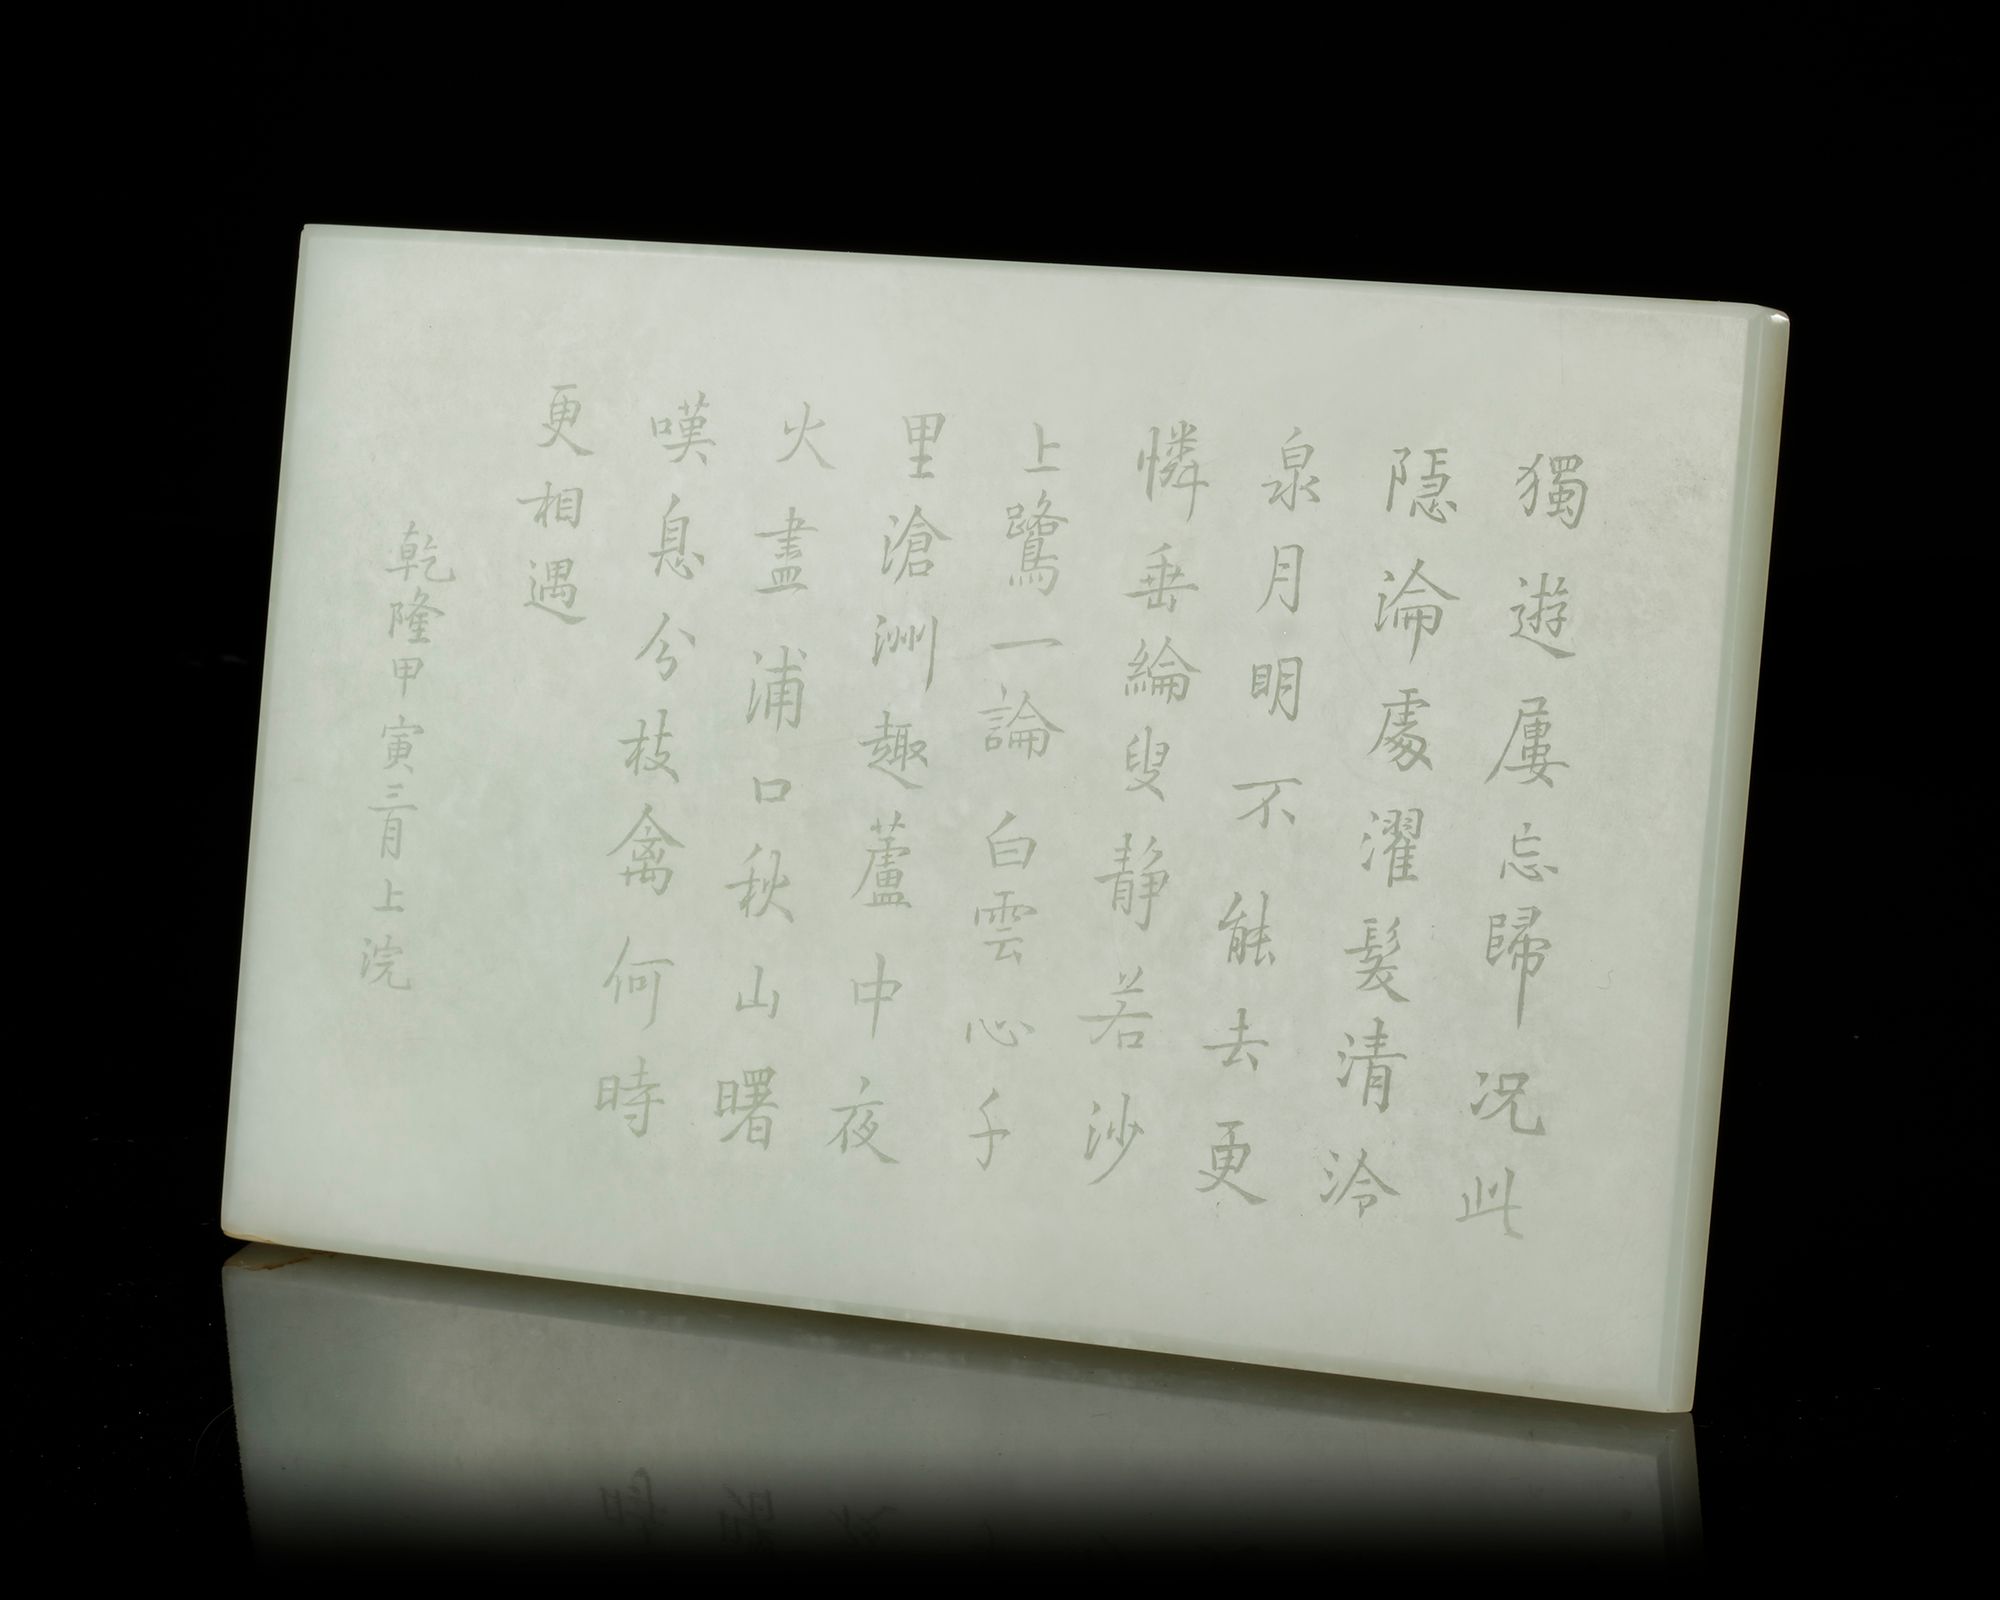 獨遊屢忘歸況此
隱淪處濯髮清泠
泉月明不能去更
憐垂綸叟靜若沙
上鷺一論白雲心千
里滄洲趣蘆中夜
火盡浦口秋山曙
嘆息分枝禽何時
更相遇
乾隆甲寅三月上浣